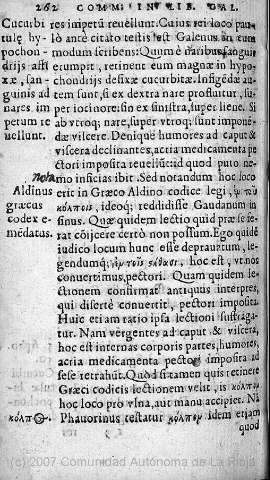 262 COMM. IN LIB. GAL.
Cucurbi
tulę hy
pochon-
drijs af-
fixæ, san-
guinis ad
nares im
petum re
uellunt.
res impetū reuellunt. Cuius rei loco pau
lò antè citato testis est Galenus, in eum
modum scribens: Quum è naribus sangui
erumpit, retinent eum magnæ in hypo-
chondrijs defixæ cucurbitæ. Infigēdæ au
tem sunt, si ex dextra nare profluit, su-
per iocinore: sin ex sinistra, super liene. Si
ab vtroq; nare, super vtroq; sunt imponē-
dæ viscere. Deniquè humores ad caput &
viscera declinantes, acria medicamenta pe
ctori imposita reuellūt: id quod puto ne-
mo inficias ibit. Sed notandum hoc loco
Nota
Aldinus
græcus
codex e-
mēdatus.
erit in Græco Aldino codice legi,
κόλπος, ideoq; reddidisse Gaudanum in
sinus. Quæ quidem lectio quid præ se fe-
rat cōijcere certò non possum. Ego quidē
iudico locum hunc esse deprauatum, le-
gendumq; ἐν τοῖς hoc est, vt nos
conuertimus, pectori. Quam quidem le-
ctionem confirmat antiquus interpres,
qui disertè conuertit, pectori imposita.
Huic etiam ratio ipsa lectioni suffraga-
tur. Nam vergentes ad caput & viscera,
hoc est internas corporis partes, humores,
acria medicamenta pectori imposita ad
sese retrahūt. Quòd si tamen quis retinere
Græci codicis lectionem velit, is κόλπον
hoc loco pro vlna, aut manu accipiet. Nā
κόλπος.
Phauorinus testatur κόλπον idem etiam
quod
(c) 2007 Comunidad Autónoma de La Rioja